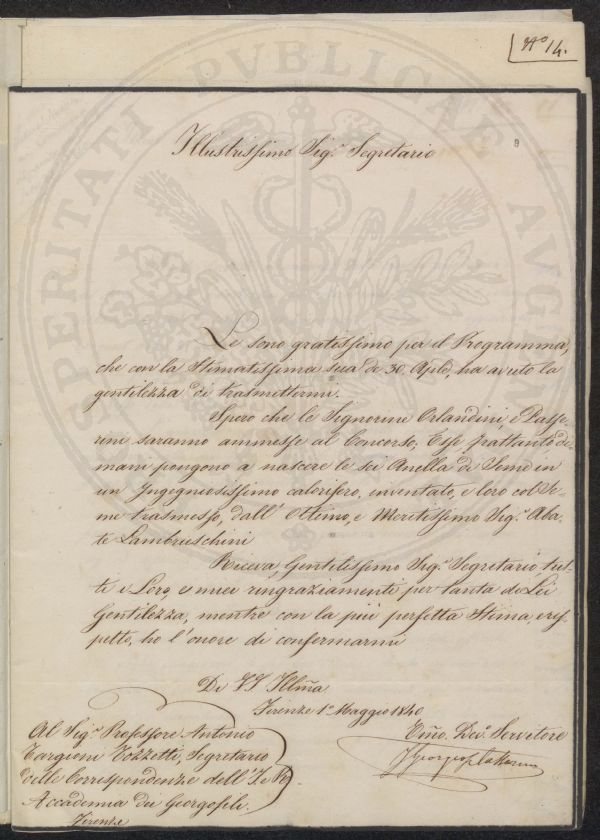 N.° 14.
Illustrissimo Sig.r Segretario
Le sono gratissimo per il Programma,
che con la Stimatissima sua de 30. Aple, ha avuto la
gentilezza di trasmettermi.
Spero che le Signorine Orlandini, e Passe-
rini saranno ammesse al Concorso, Esse frattanto do-
mani pongono a nascere le sei Anella di Seme in
un Ingegniosissimo calorifero, inventato, e loro col Se-
me trasmesso, dall' Ottimo, e Meritissimo Sig.r Aba-
te Lambruschini
Riceva, Gentilissimo Sig.r Segretario tut-
ti i Loro, e miei ringraziamenti per tanta di Lei
Gentilezza, mentre con la più perfetta Stima, e ris-
petto, ho l'onore di confermarmi
Di VS Illma
Firenze 1° Maggio 1840
Al Sig.r Professore Antonio
Targioni Tozzetti, Segretario
delle Corrispondenze dell' I. e R.
Accademia dei Georgofili.
Firenze
Umo Devo Servitore
PROSPERITATI PUBLICAE AUGENDAE